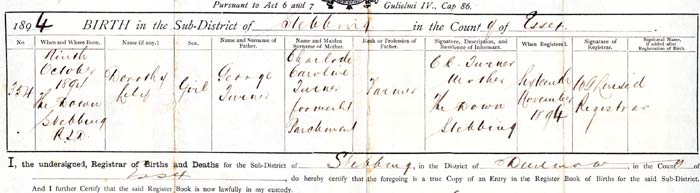 Pursuant to Act 6 and 7 Gulielmi IV., Cap 86.
1894 BIRTH in the Sub-District of Stebbing in the County of Essex
No. When and Where Born. Name (if any). Sex. Name and Surname of Father. Name and Maiden Surname of Mother. Rank or Profession of Father. Signature, Description, and Residence of Informant. When Registered. Signature of Registrar. Baptismal Name, if added after Registration of Birth.
354 Ninth October 1894 The Down Stebbing R.S.D. Dorothy Lily Girl George Turner Charlotte Caroline Turner formerly Parchment Farmer C.C. Turner Mother The Down Stebbing Sixteenth November 1894 Registrar
I, the undersigned, Registrar of Births and Deaths for the Sub-District of Stebbing, in the District of Dunmow, in the County of
Essex, do hereby certify that the foregoing is a true Copy of an Entry in the Register Book of Births for the said Sub-District.
And I further Certify that the said Register Book is now lawfully in my custody.